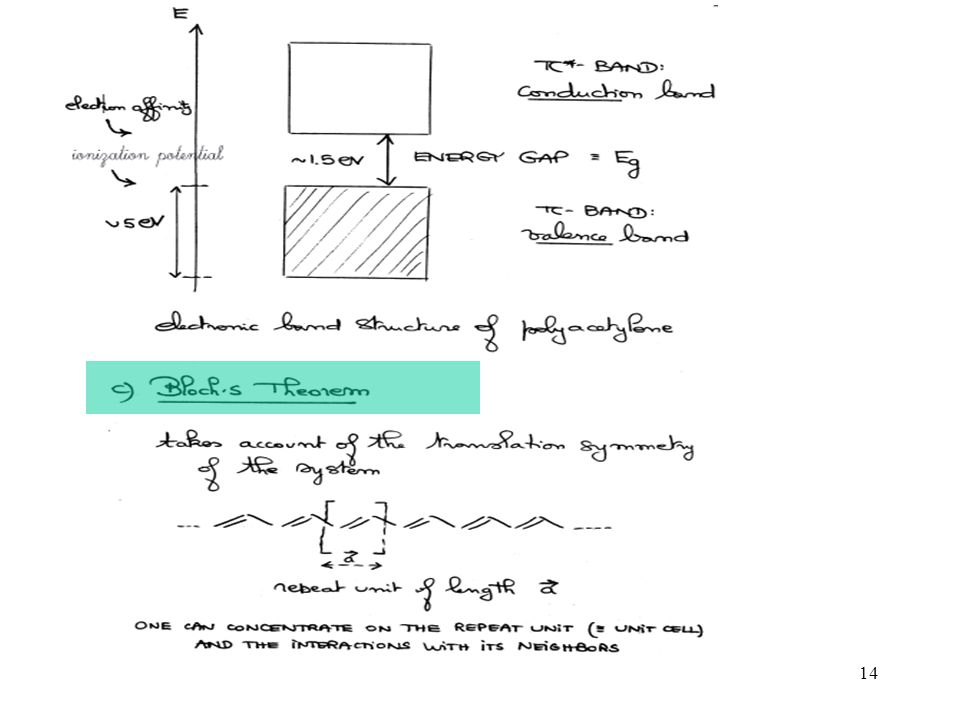 E
π*- BAND:
conduction band
electron affinity
ionization potential
~1.5 eV
ENERGY GAP ≡ Eg
π- BAND:
valence band
~5 eV
electronic band structure of polyacetylene
c) Bloch's Theorem
takes account of the translation symmetry
of the system
a⃗
repeat unit of length a⃗
ONE CAN CONCENTRATE ON THE REPEAT UNIT (≡ UNIT CELL)
AND THE INTERACTIONS WITH ITS NEIGHBORS
14